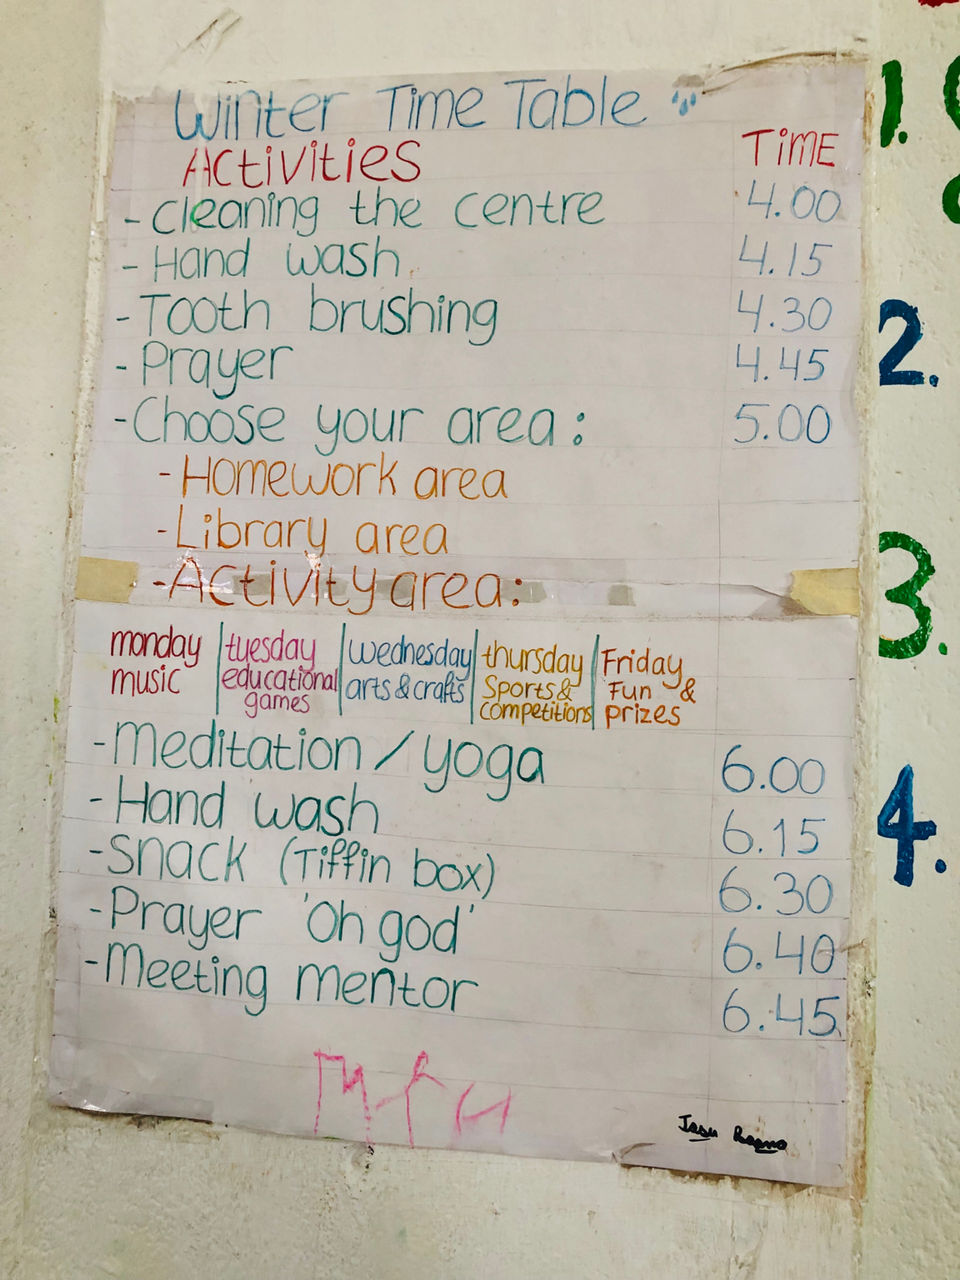 Winter Time Table
Activities TiME
- Cleaning the centre 4.00
- Hand wash 4.15
- Tooth brushing 4.30
- Prayer 4.45
- Choose your area : 5.00
- Homework area
- Library area
- Activity area:
monday tuesday wednesday thursday Friday
music educational games arts & crafts Sports & competitions Fun & prizes
- Meditation / yoga 6.00
- Hand wash 6.15
- Snack (Tiffin box) 6.30
- Prayer 'Oh god' 6.40
- Meeting mentor 6.45
1.
2.
3.
4.